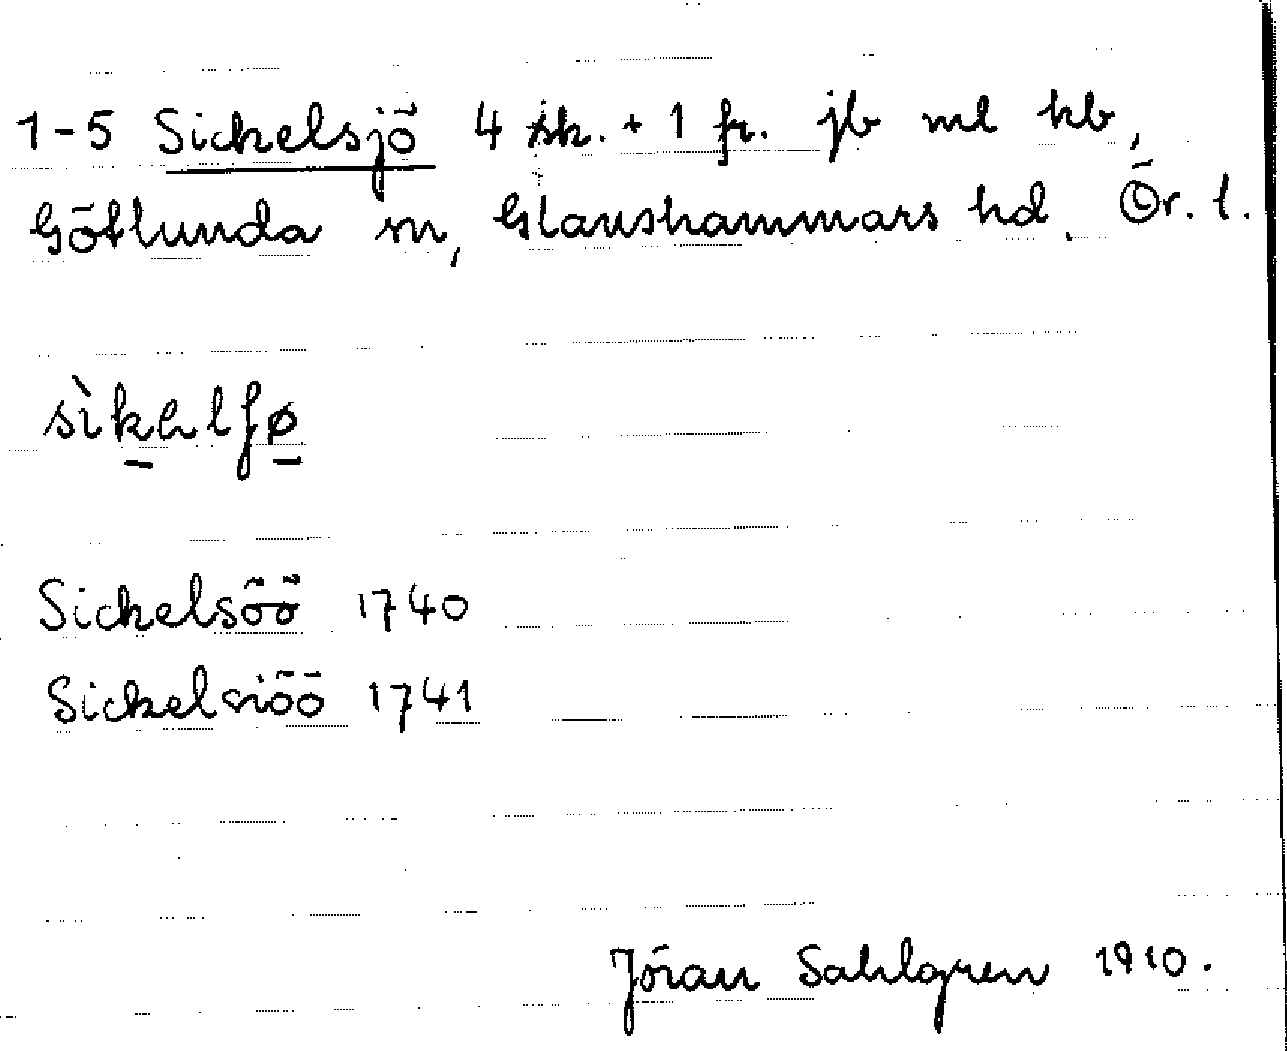 1-5 Sickelsjö 4 sk. + 1 fr. jb ml kb,
Götlunda sn, Glanshammars hd. Ör. l.
sìkəlʃø
Sickelsöö 1740
Sickelsiöö 1741
Jöran Sahlgren 1910.